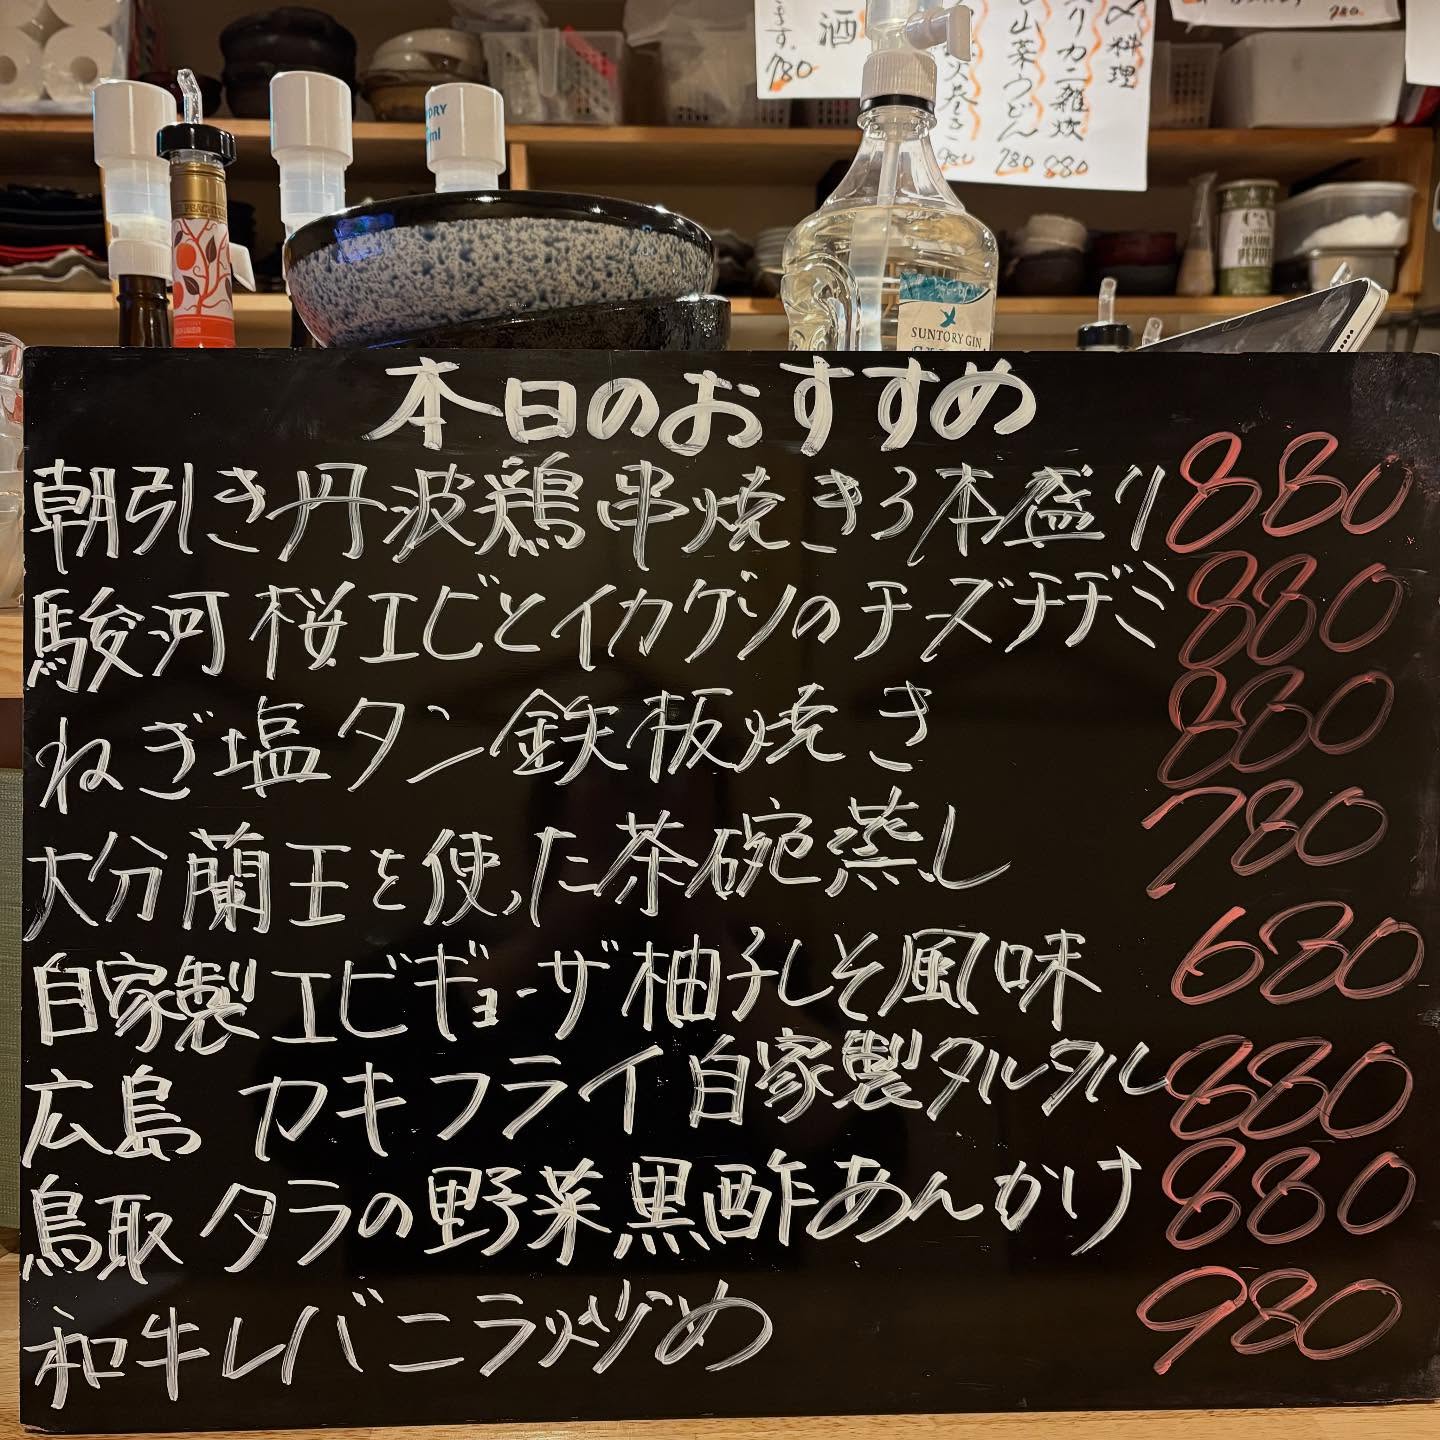 酒
780
〆料理
980
山菜うどん
780
880
780
SUNTORY GIN
本日のおすすめ
朝引き丹波鶏串焼き3本盛り 880
駿河桜エビとイカゲソのチーズチヂミ 880
ねぎ塩タン鉄板焼き 880
大分蘭王を使った茶碗蒸し 780
自家製エビギョーザ柚子しそ風味 680
広島 カキフライ自家製タルタル 880
鳥取タラの野菜黒酢あんかけ 880
和牛レバニラ炒め 980